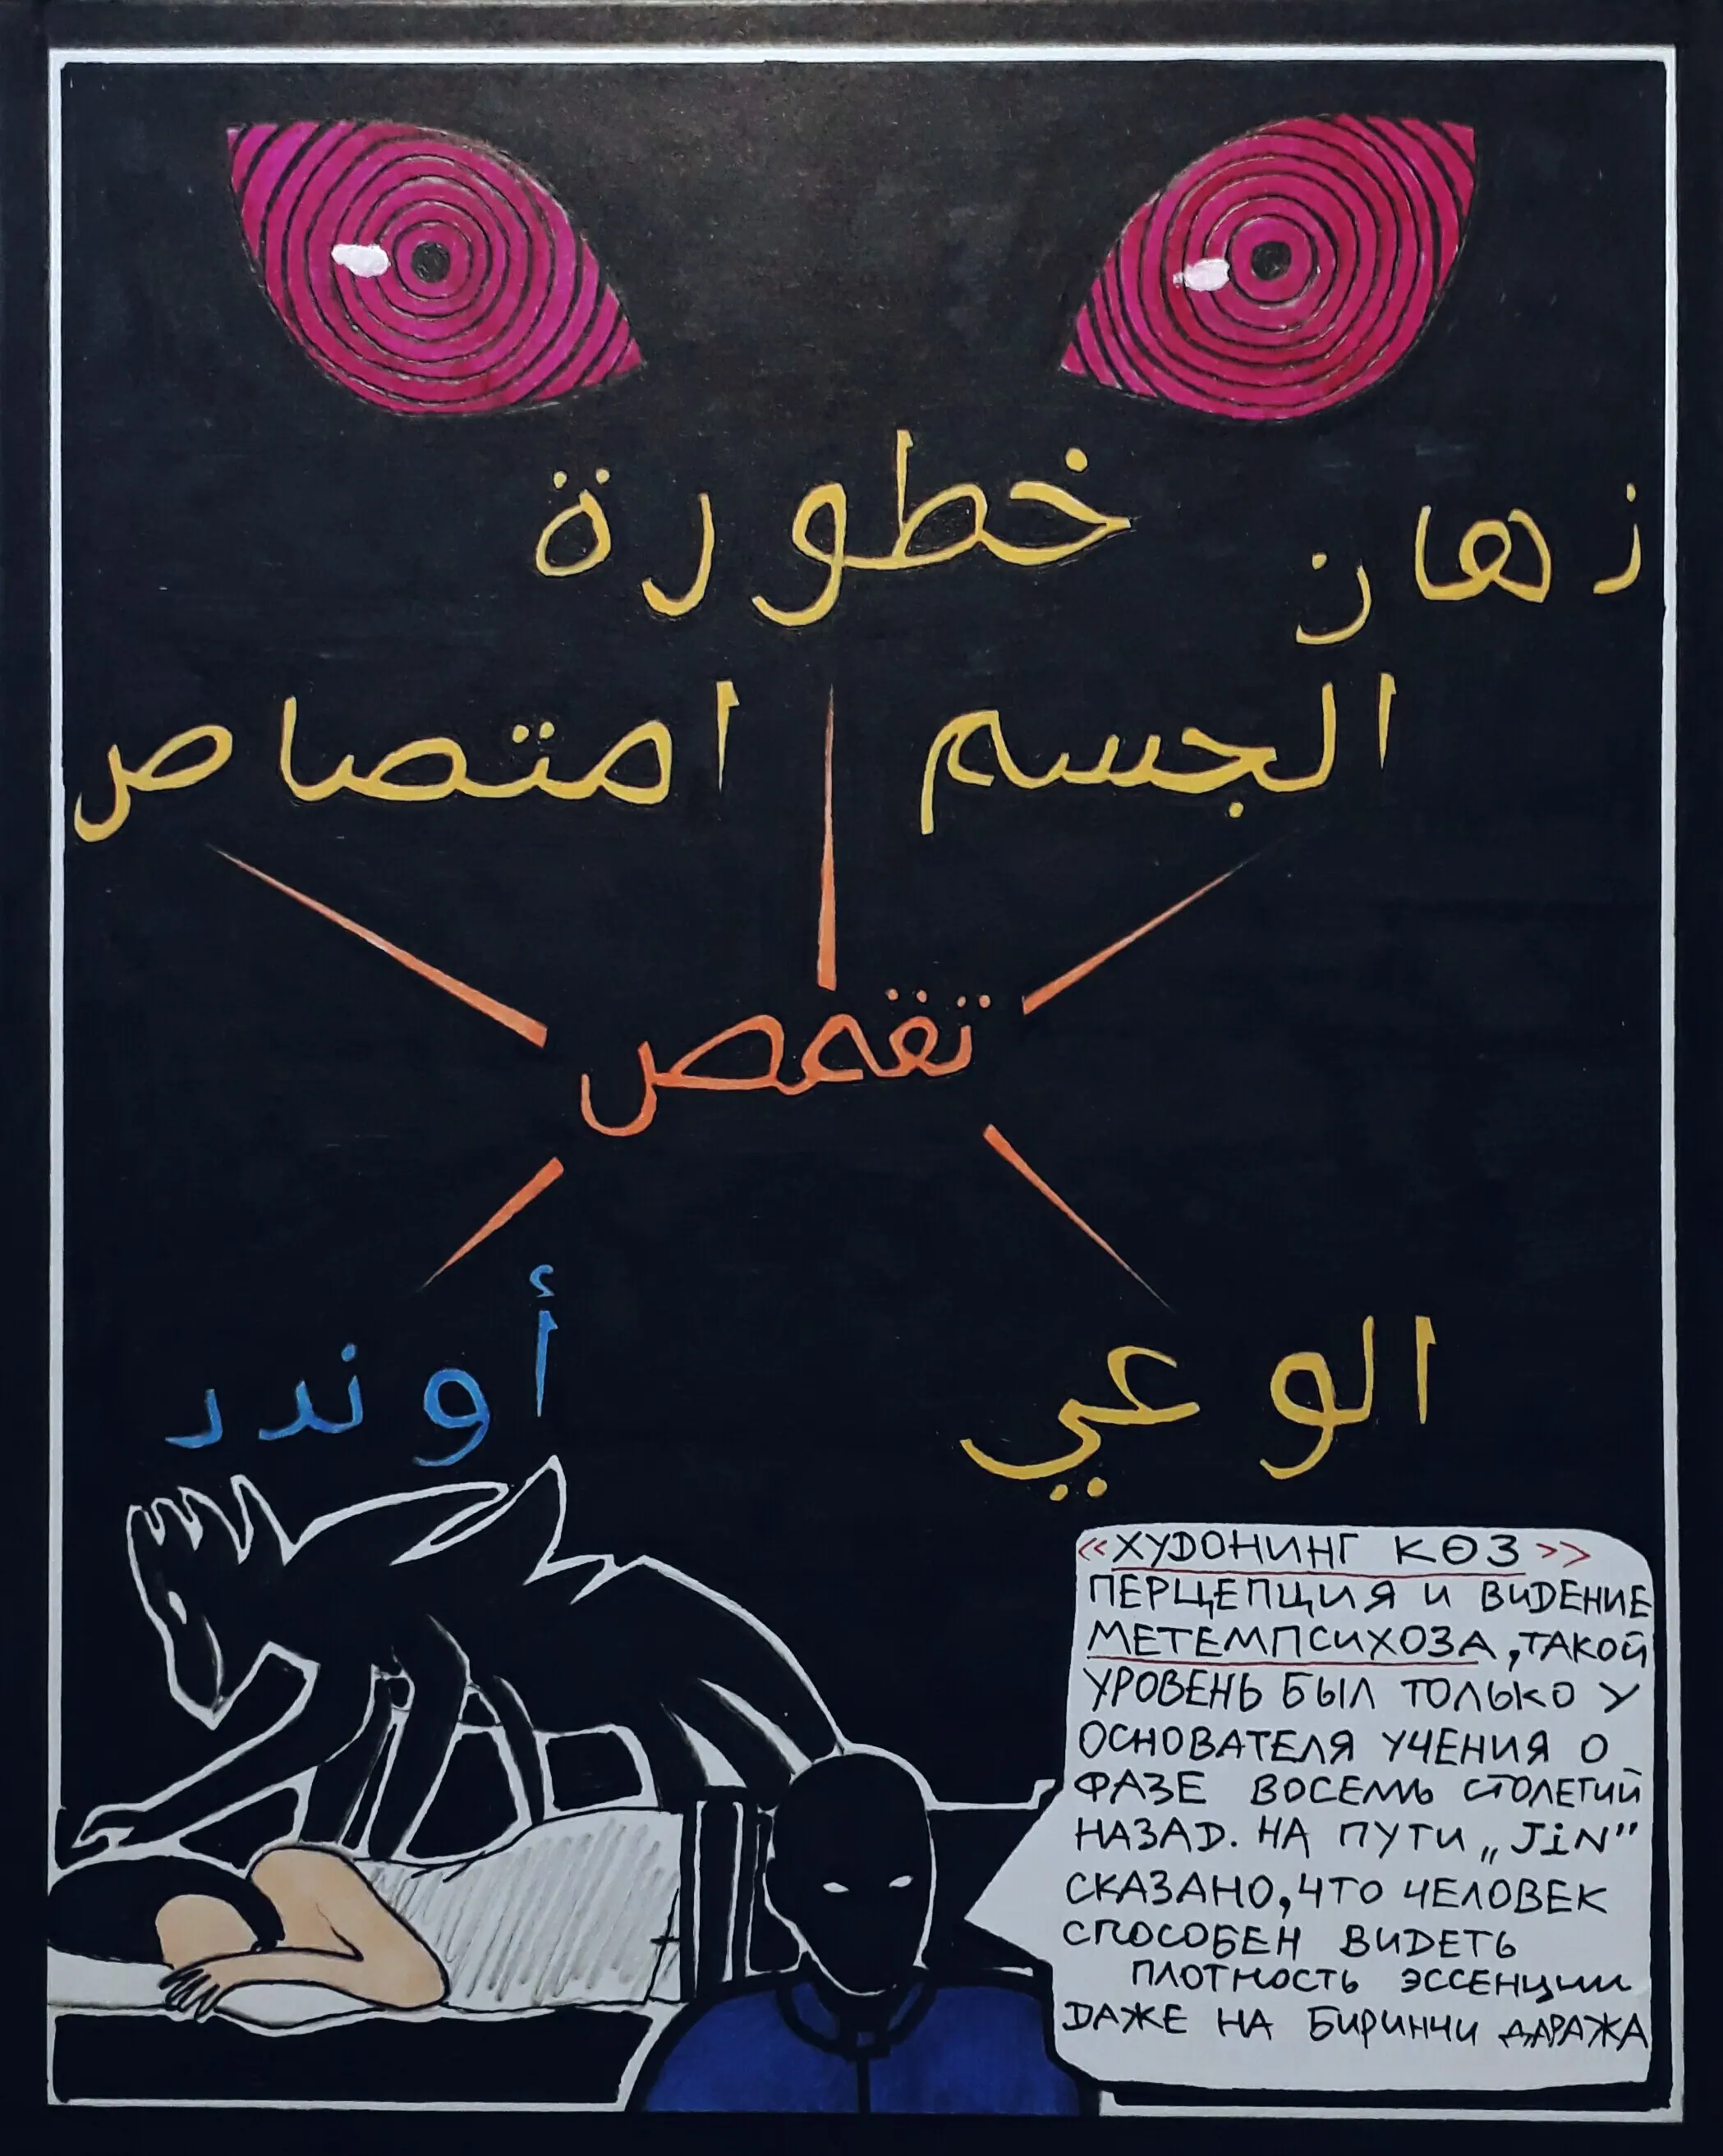 خطورة
ذهان
امتصاص
الجسم
تقمص
أوندر
الوعي
«ХУДОНИНГ КӨЗ»
ПЕРЦЕПЦИЯ И ВИДЕНИЕ
МЕТЕМПСИХОЗА, ТАКОЙ
УРОВЕНЬ БЫЛ ТОЛЬКО У
ОСНОВАТЕЛЯ УЧЕНИЯ О
ФАЗЕ ВОСЕМЬ СТОЛЕТИЙ
НАЗАД. НА ПУТИ „JiN”
СКАЗАНО, ЧТО ЧЕЛОВЕК
СПОСОБЕН ВИДЕТЬ
ПЛОТНОСТЬ ЭССЕНЦИИ
ДАЖЕ НА БИРИНЧИ ДАРАЖА